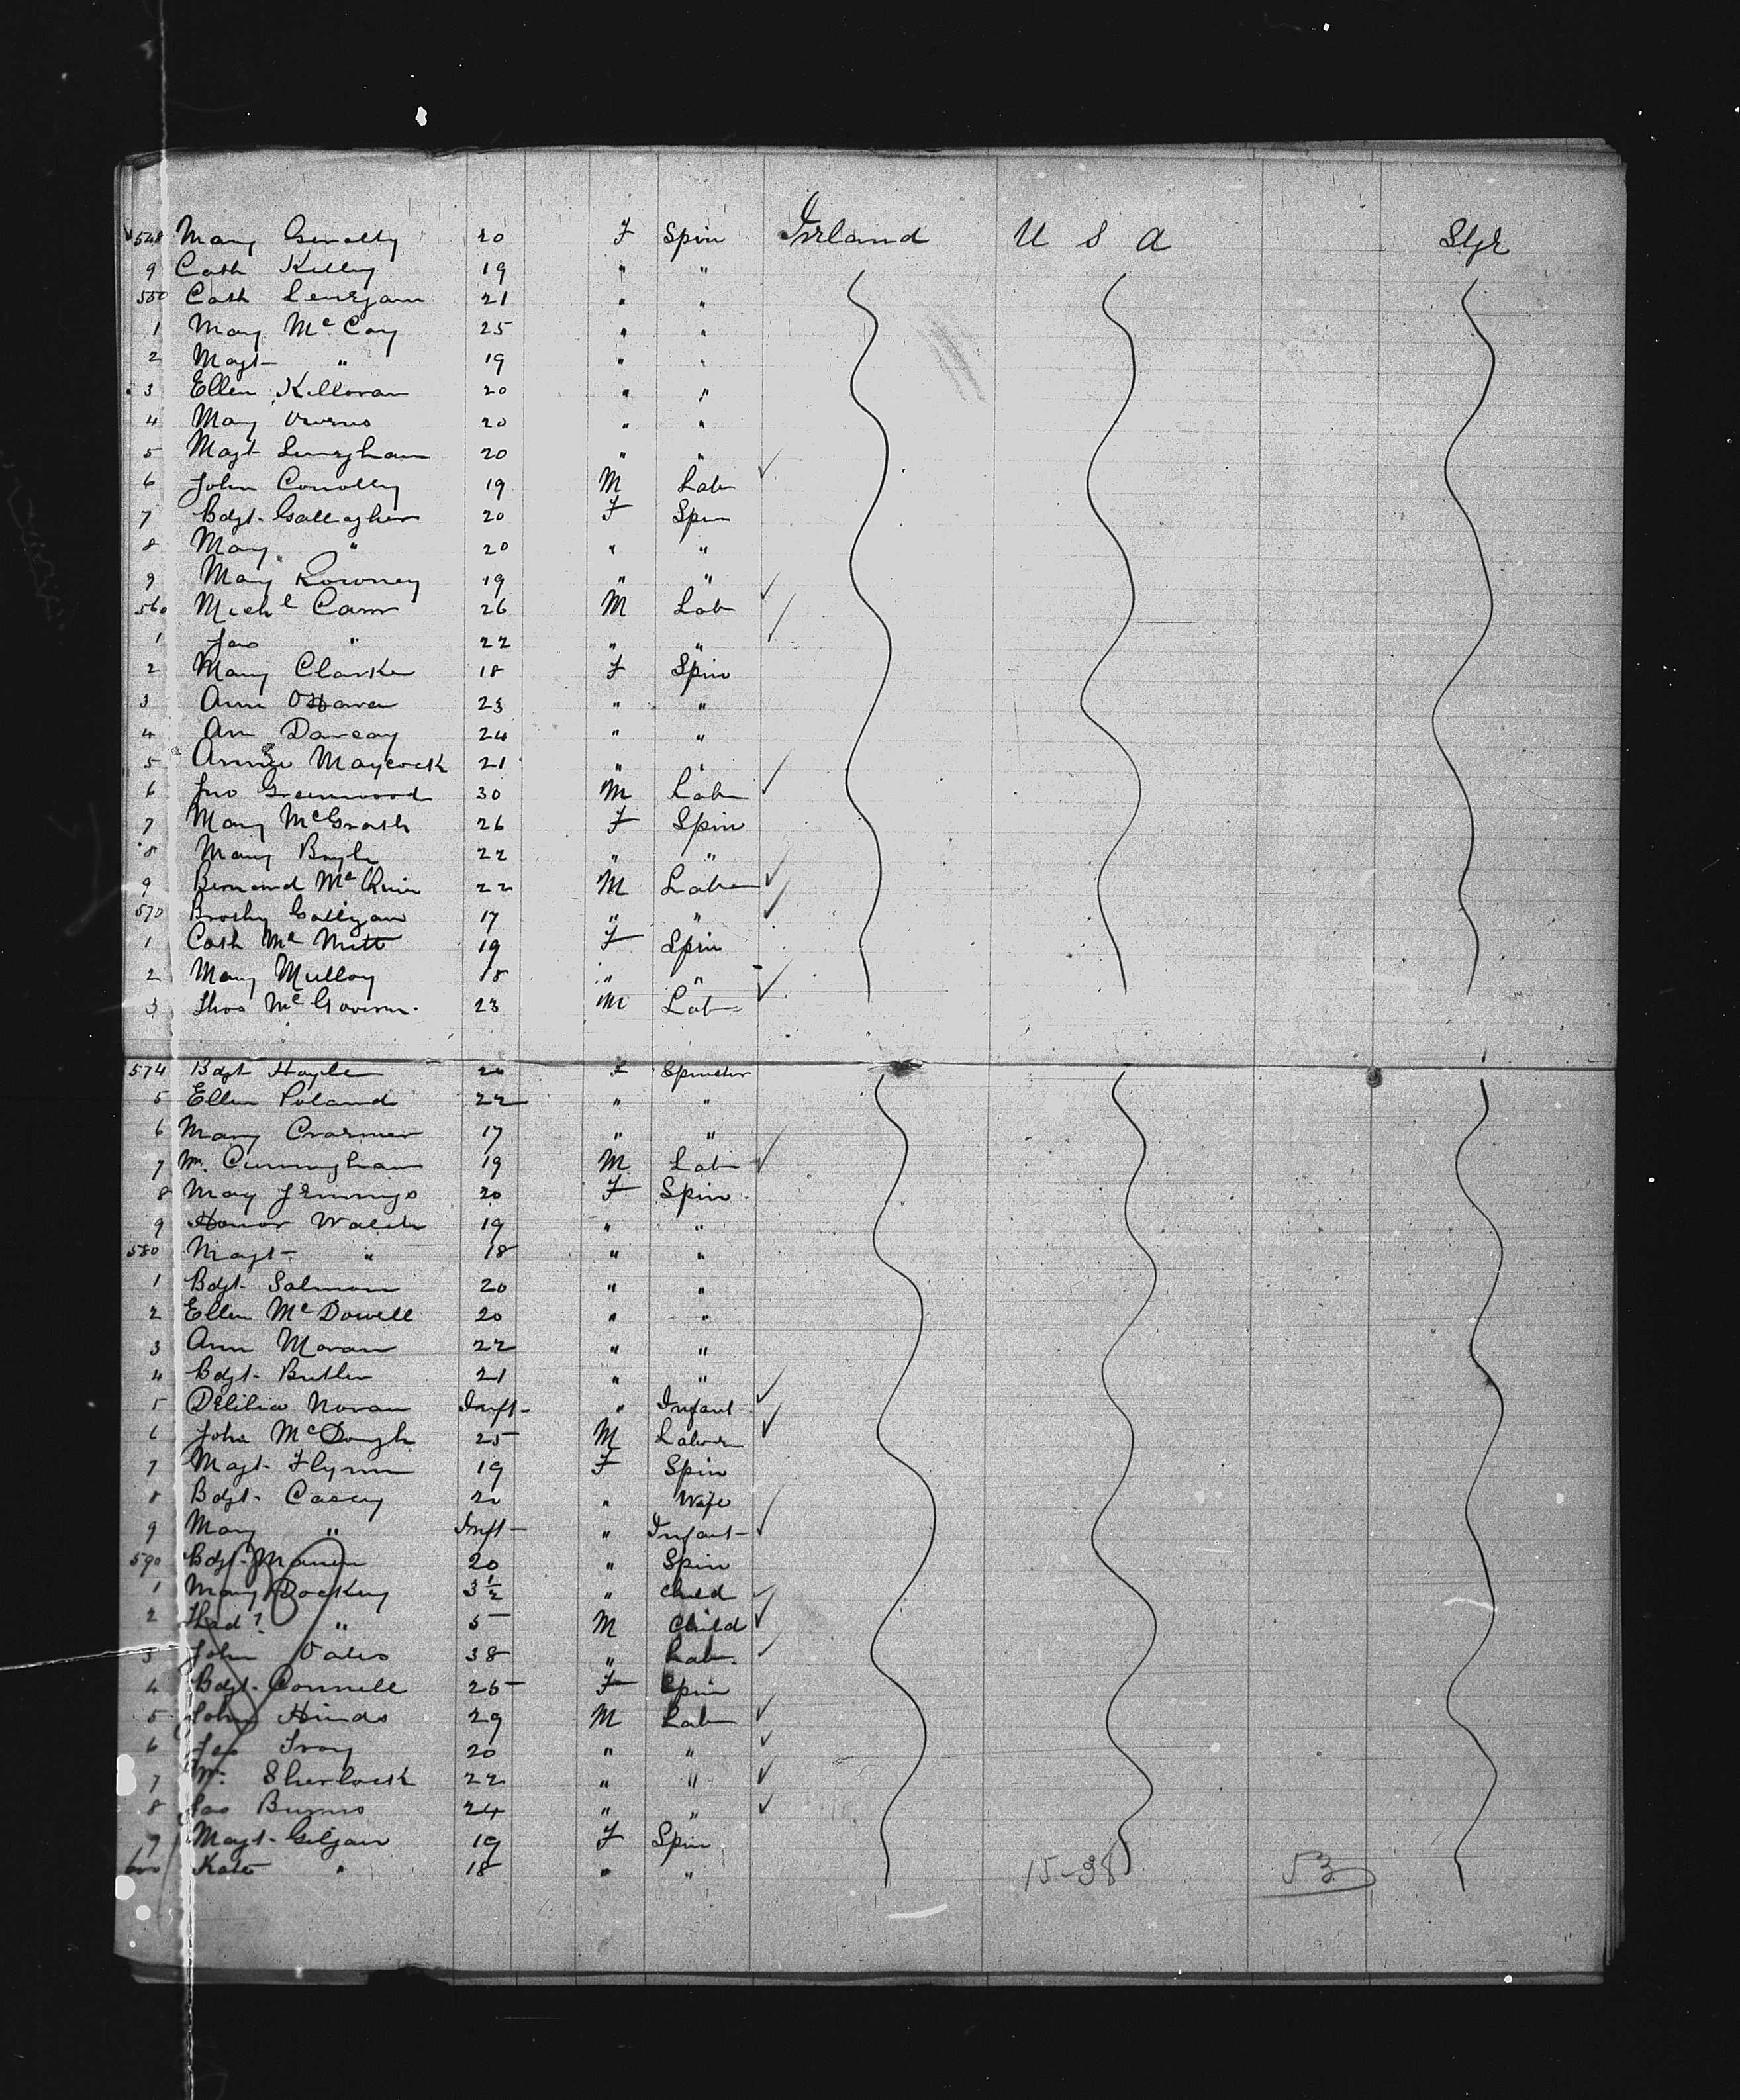 548 Mary Geraty 20 F Spin Irland U S A Stge
9 Cath Kelly 19 " "
550 Cath Lenegan 21 " "
1 Mary Mc Coy 25 " "
2 Magt " 19 " "
3 Ellen Killoran 20 " "
4 Mary Owens 20 " "
5 Magt Leneghan 20 " "
6 John Conolly 19 M Lab
7 Bdgt Gallagher 20 F Spin
8 Mary " 20 " "
9 Mary Rowney 19 " "
560 Michl Carr 26 M Lab
1 Jas " 22 " "
2 Mary Clarke 18 F Spin
3 Ann O'Hara 23 " "
4 Ann Darcay 24 " "
5 Annie Maycock 21 " "
6 Jno Greenwood 30 M Lab
7 Mary McGrath 26 F Spin
8 Mary Boyle 22 " "
9 Bernard Mc 22 M Labr
570 Galligan 17 " "
1 Cath Mc Nitt 19 F Spin
2 Mary Mulloy 18 " "
3 Thos Mc Govern 23 M Lab
574 Bdgt Hoyle 20 F Spinster
5 Ellen Poland 22 " "
6 Mary 17 " "
7 Wm. Cunningham 19 M Lab
8 May Jennings 20 F Spin
9 Honor Walsh 19 " "
580 Magt " 18 " "
1 Bdgt Salmon 20 " "
2 Ellen Mc Dowell 20 " "
3 Ann Moran 22 " "
4 Bdgt Butler 21 " "
5 Delilia Noran Inft " Infant
6 John McDongh 25 M Labor
7 Magt Flynn 19 F Spin
8 Bdgt Casey 20 " Wife
9 Mary " Inft " Infant
590 Bdgt 20 " Spin
1 Mary Dockey 3½ " Child
2 Thad? " 5 M Child
3 John Oates 38 " Lab
4 Bdgt Connell 25 F Spin
5 John Hinds 29 M Lab
6 Jas Troy 20 " "
7 Wm. Sherlock 22 " "
8 Jas Burns 24 " "
9 Magt Gilgan 19 F Spin
600 Kate " 18 " " 15-38 53